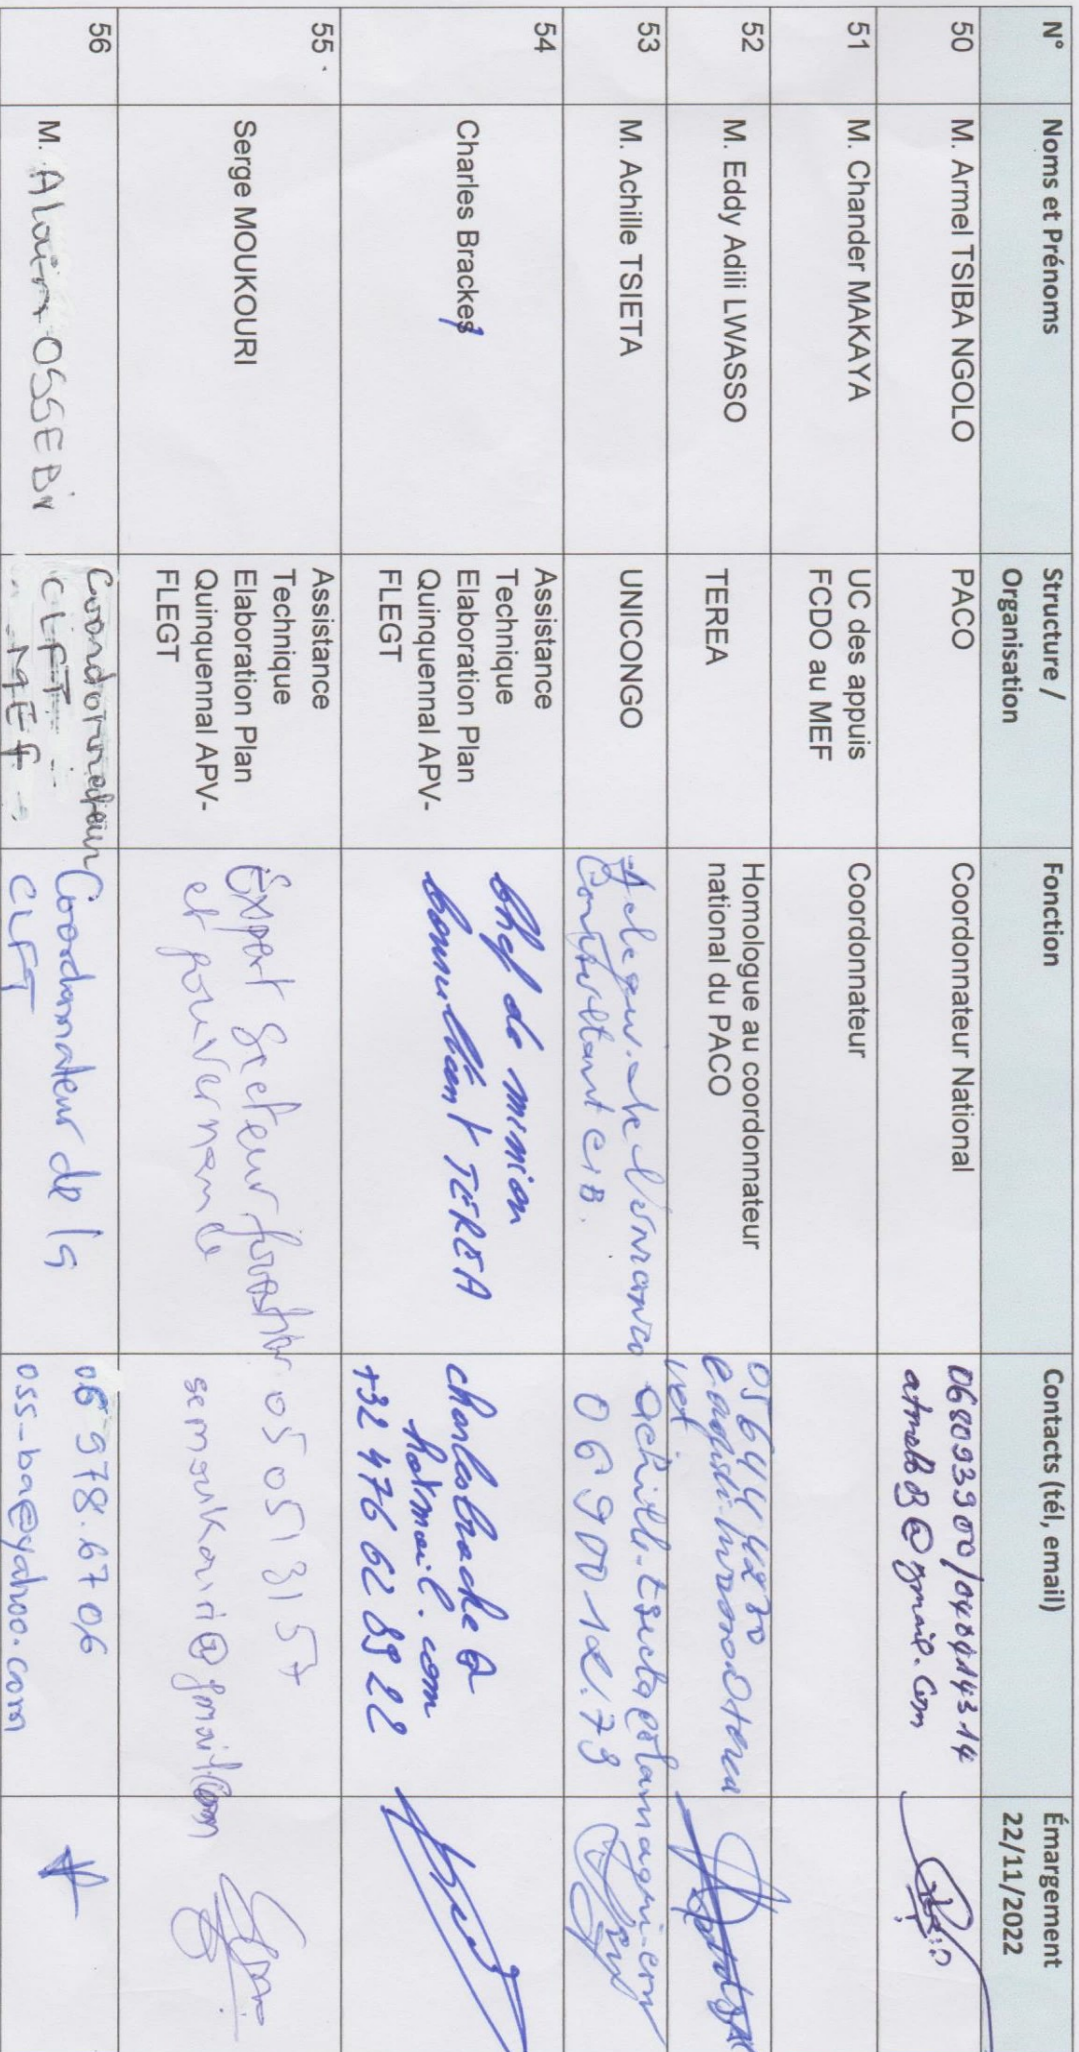 N°
Noms et Prénoms
Structure /
Organisation
Fonction
Contacts (tél, email)
Émargement
22/11/2022
50
M. Armel TSIBA NGOLO
PACO
Coordonnateur National
51
M. Chander MAKAYA
UC des appuis
FCDO au MEF
Coordonnateur
52
M. Eddy Adili LWASSO
TEREA
Homologue au coordonnateur
national du PACO
53
M. Achille TSIETA
UNICONGO
Consultant CIB.
06 900 12.73
54
Charles Bracke
Assistance
Technique
Elaboration Plan
Quinquennal APV-
FLEGT
Chef de mission
Consultant TEREA
charlesbracke@
hotmail.com
+32 476 62 89 22
55
Serge MOUKOURI
Assistance
Technique
Elaboration Plan
Quinquennal APV-
FLEGT
Expert Secteur forestier
et gouvernance
05 505 31 57
semoukouri@gmail.com
56
M. Alain OSSEBI
Coordonnateur
CLFT
MEF
Coordonnateur de la
CLFT
06 978.67 06
oss_ba@yahoo.com